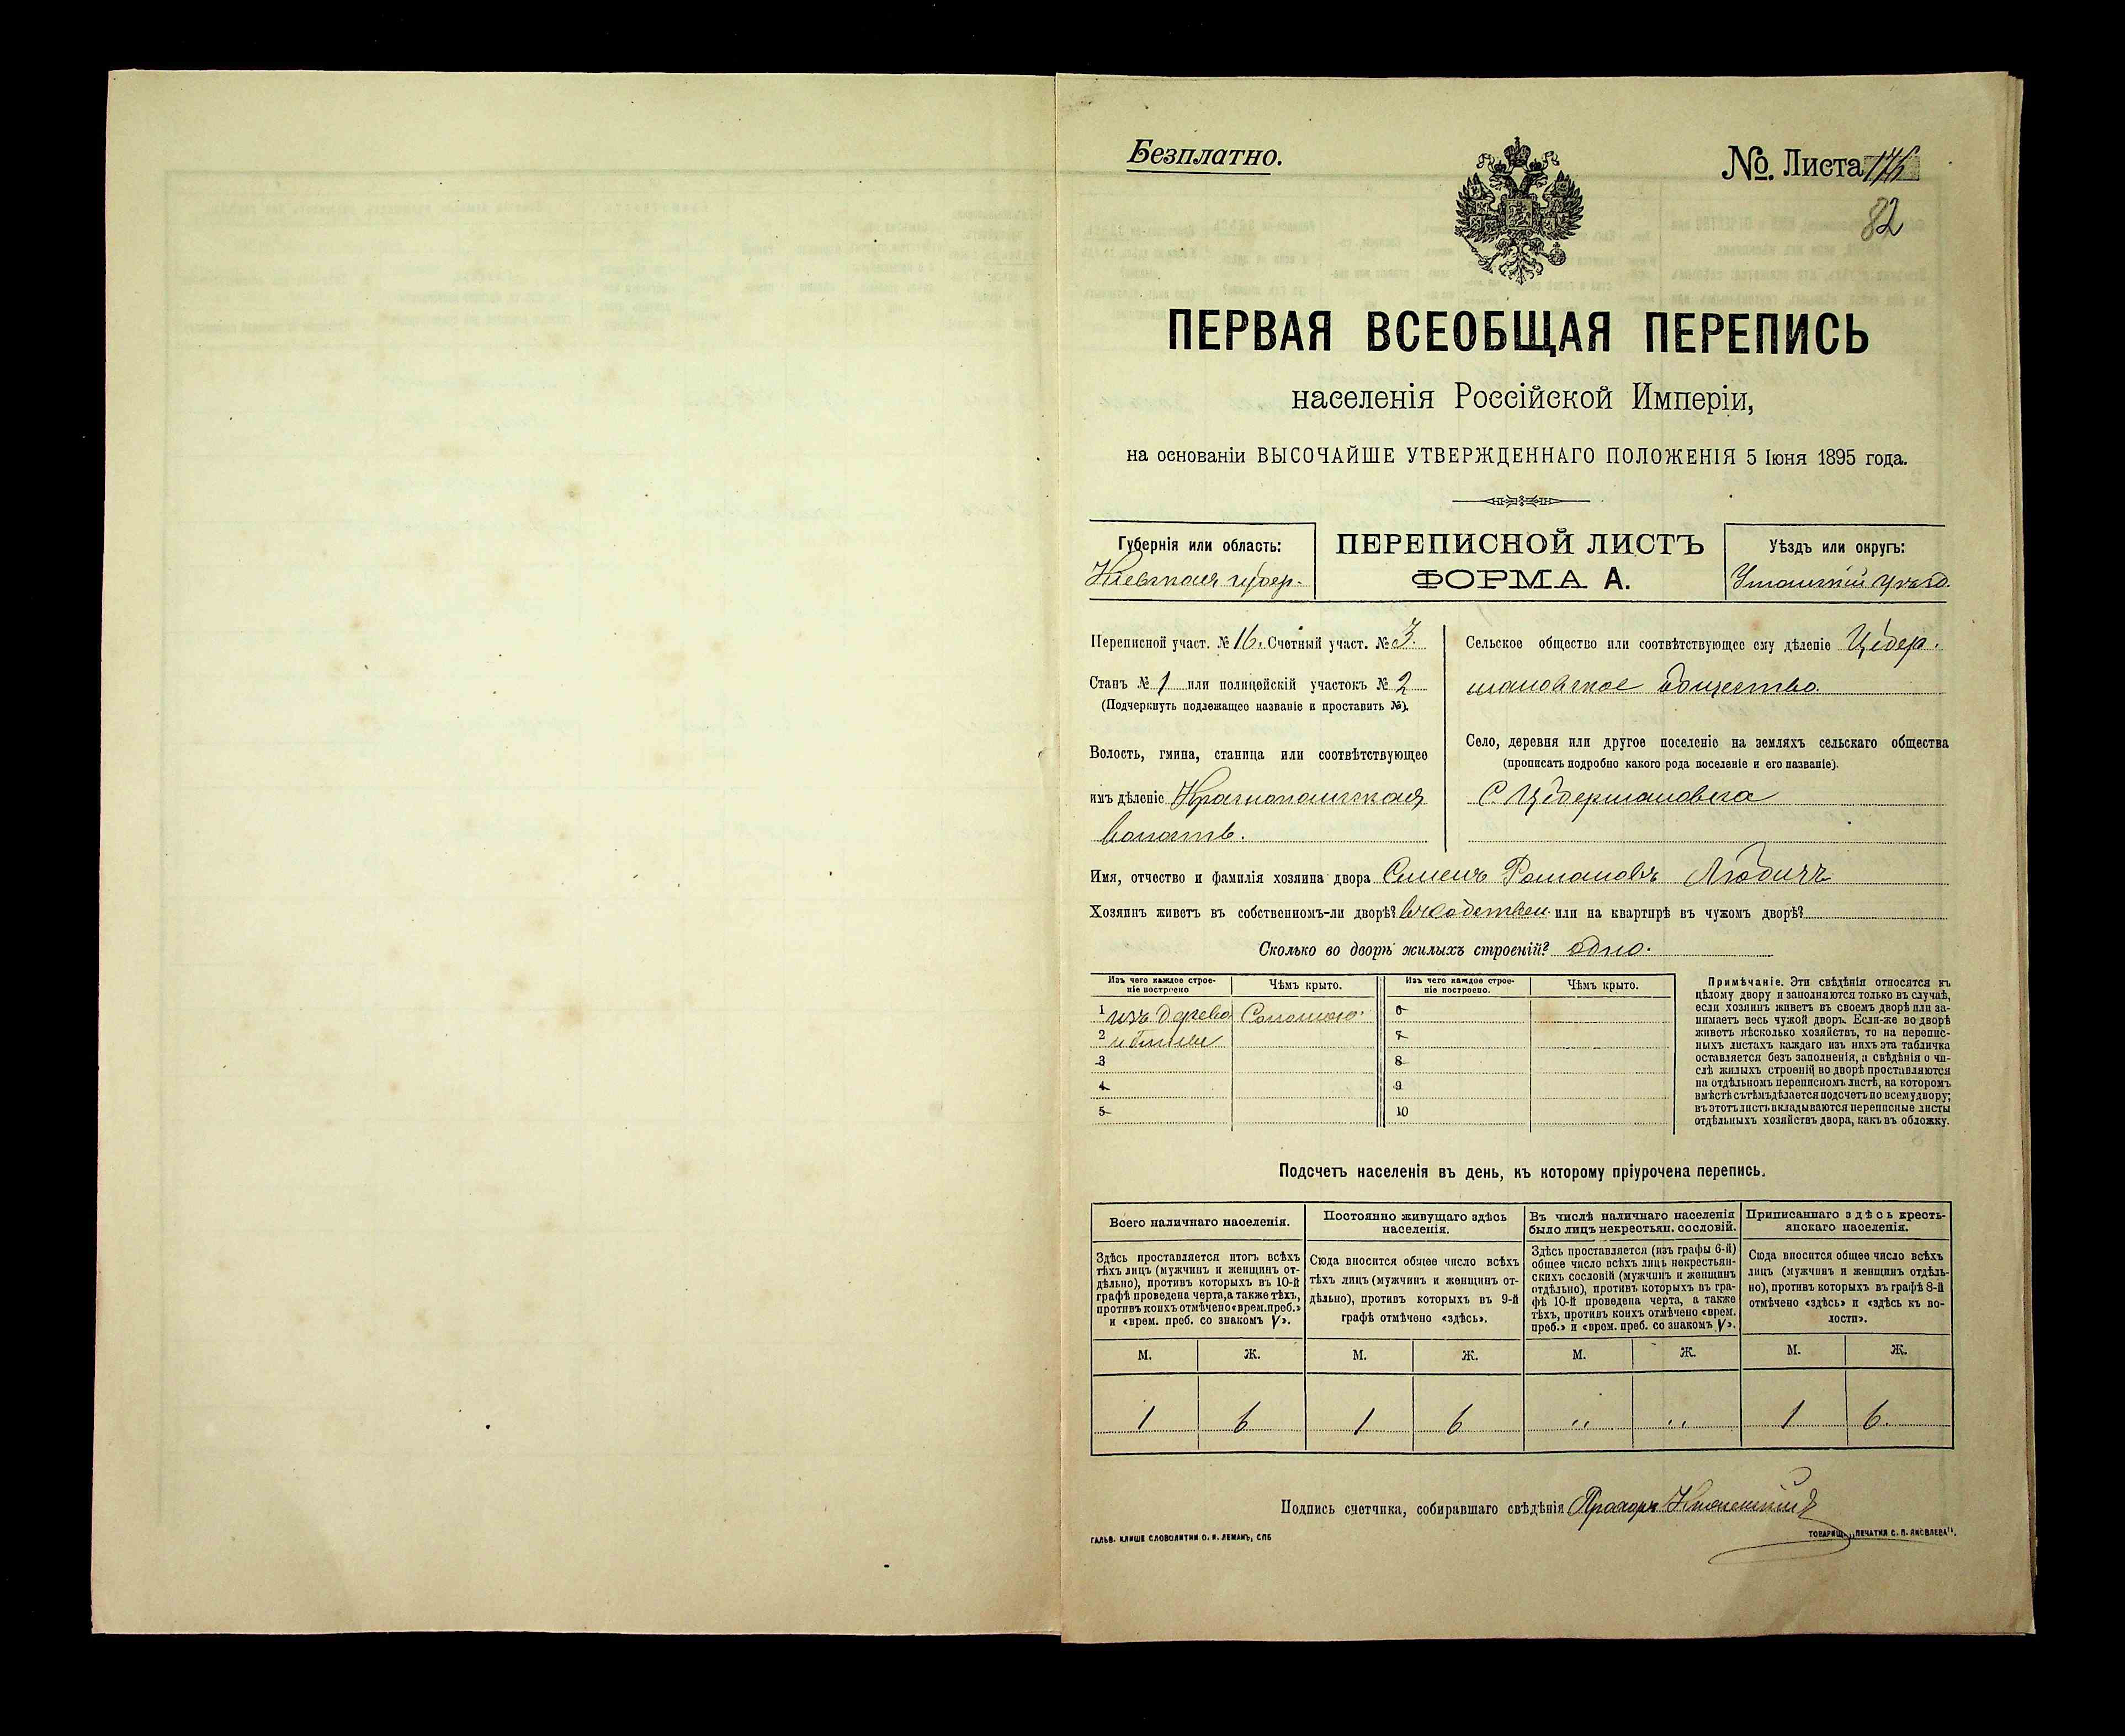 Безплатно.
№. Листа
82
ПЕРВАЯ ВСЕОБЩАЯ ПЕРЕПИСЬ
населенія Россійской Имперіи,
на основаніи ВЫСОЧАЙШЕ УТВЕРЖДЕННАГО ПОЛОЖЕНІЯ 5 Іюня 1895 года.
Губернія или область:
Кіевская губер.
ПЕРЕПИСНОЙ ЛИСТЪ
ФОРМА А.
Уѣздъ или округъ:
Уманскій уѣзд.
Переписной участ. № 16. Счетный участ. № 3.
Станъ № 1 или полицейскій участокъ № 2
(Подчеркнуть подлежащее названіе и проставить №).
Волость, гмина, станица или соотвѣтствующее
имъ дѣленіе Краснопольская
волость.
Сельское общество или соотвѣтствующее ему дѣленіе Цебер.
мановское общество.
Село, деревня или другое поселеніе на земляхъ сельскаго общества
(прописать подробно какого рода поселеніе и его названіе).
С. Цебермановка
Имя, отчество и фамилія хозяина двора Семенъ Романовъ
Хозяинъ живетъ въ собственномъ-ли дворѣ? въ собствен. или на квартирѣ въ чужомъ дворѣ?
Сколько во дворѣ жилыхъ строеній? одно.
Изъ чего каждое строе-
ніе построено
Чѣмъ крыто.
Изъ чего каждое строе-
ніе построено.
Чѣмъ крыто.
1 изъ дерева Соломою. 6
2 и глины 7
3 8
4 9
5 10
Примѣчаніе. Эти свѣдѣнія относятся къ
цѣлому двору и заполняются только въ случаѣ,
если хозяинъ живетъ въ своемъ дворѣ или за-
нимаетъ весь чужой дворъ. Если-же во дворѣ
живетъ нѣсколько хозяйствъ, то на перепис-
ныхъ листахъ каждаго изъ нихъ эта табличка
оставляется безъ заполненія, а свѣдѣнія о чи-
слѣ жилыхъ строеній во дворѣ проставляются
на отдѣльномъ переписномъ листѣ, на которомъ
вмѣстѣ съ тѣмъ дѣлается подсчетъ по всему двору;
въ этотъ листъ вкладываются переписные листы
отдѣльныхъ хозяйствъ двора, какъ въ обложку.
Подсчетъ населенія въ день, къ которому пріурочена перепись.
Всего наличнаго населенія.
Здѣсь проставляется итогъ всѣхъ
тѣхъ лицъ (мужчинъ и женщинъ от-
дѣльно), противъ которыхъ въ 10-й
графѣ проведена черта, а также тѣхъ,
противъ коихъ отмѣчено «врем. преб.»
и «врем. преб. со знакомъ V».
Постоянно живущаго здѣсь
населенія.
Сюда вносится общее число всѣхъ
тѣхъ лицъ (мужчинъ и женщинъ от-
дѣльно), противъ которыхъ въ 9-й
графѣ отмѣчено «здѣсь».
Въ числѣ наличнаго населенія
было лицъ некрестьян. сословій.
Здѣсь проставляется (изъ графы 6-й)
общее число всѣхъ лицъ некрестьян-
скихъ сословій (мужчинъ и женщинъ
отдѣльно), противъ которыхъ въ гра-
фѣ 10-й проведена черта, а также
тѣхъ, противъ коихъ отмѣчено «врем.
преб.» и «врем. преб. со знакомъ V».
Приписаннаго здѣсь кресть-
янскаго населенія.
Сюда вносится общее число всѣхъ
лицъ (мужчинъ и женщинъ отдѣль-
но), противъ которыхъ въ графѣ 8-й
отмѣчено «здѣсь» и «здѣсь къ во-
лости».
М. Ж. М. Ж. М. Ж. М. Ж.
1 6 1 6 „ „ 1 6.
Подпись счетчика, собиравшаго свѣдѣнія Прохоръ
ГАЛЬВ. КЛИШЕ СЛОВОЛИТНИ О. И. ЛЕМАНЪ, СПБ
ТОВАРИЩ. „ПЕЧАТНЯ С. П. ЯКОВЛЕВА".